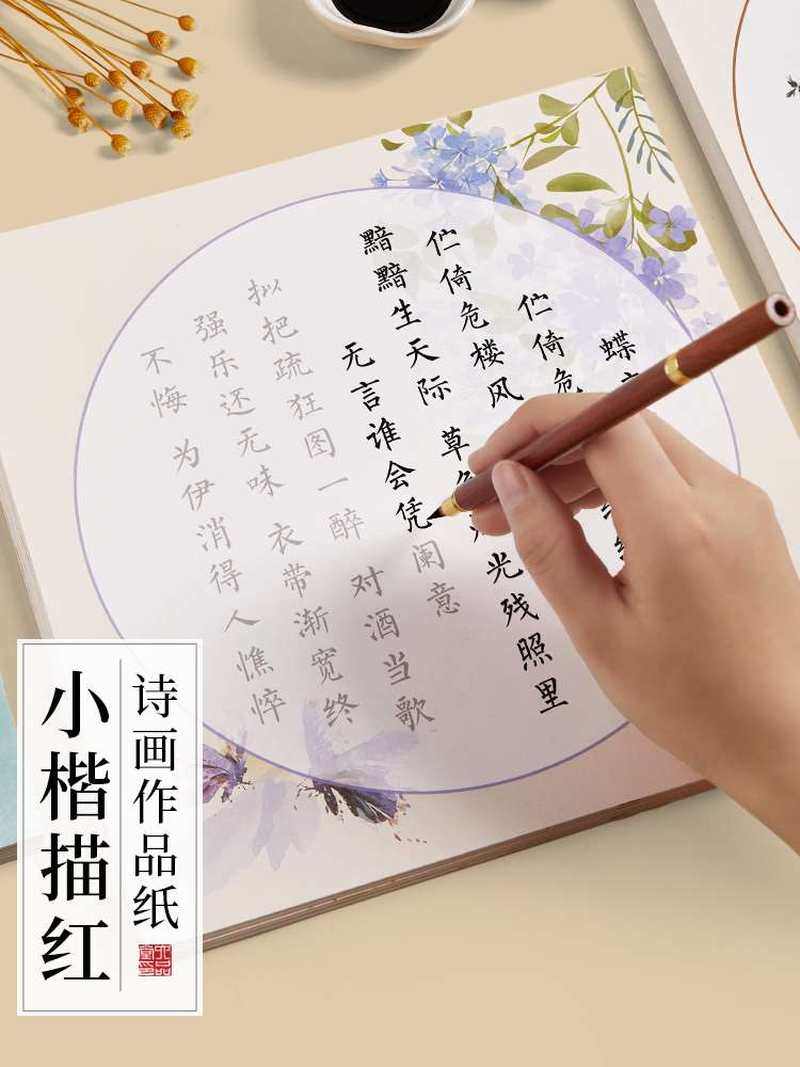 蝶
伫倚危
伫倚危楼风
黯黯生天际 草色 光残照里
无言谁会凭阑意
拟把疏狂图一醉 对酒当歌
强乐还无味 衣带渐宽终
不悔 为伊消得人憔悴
诗画作品纸
小楷描红